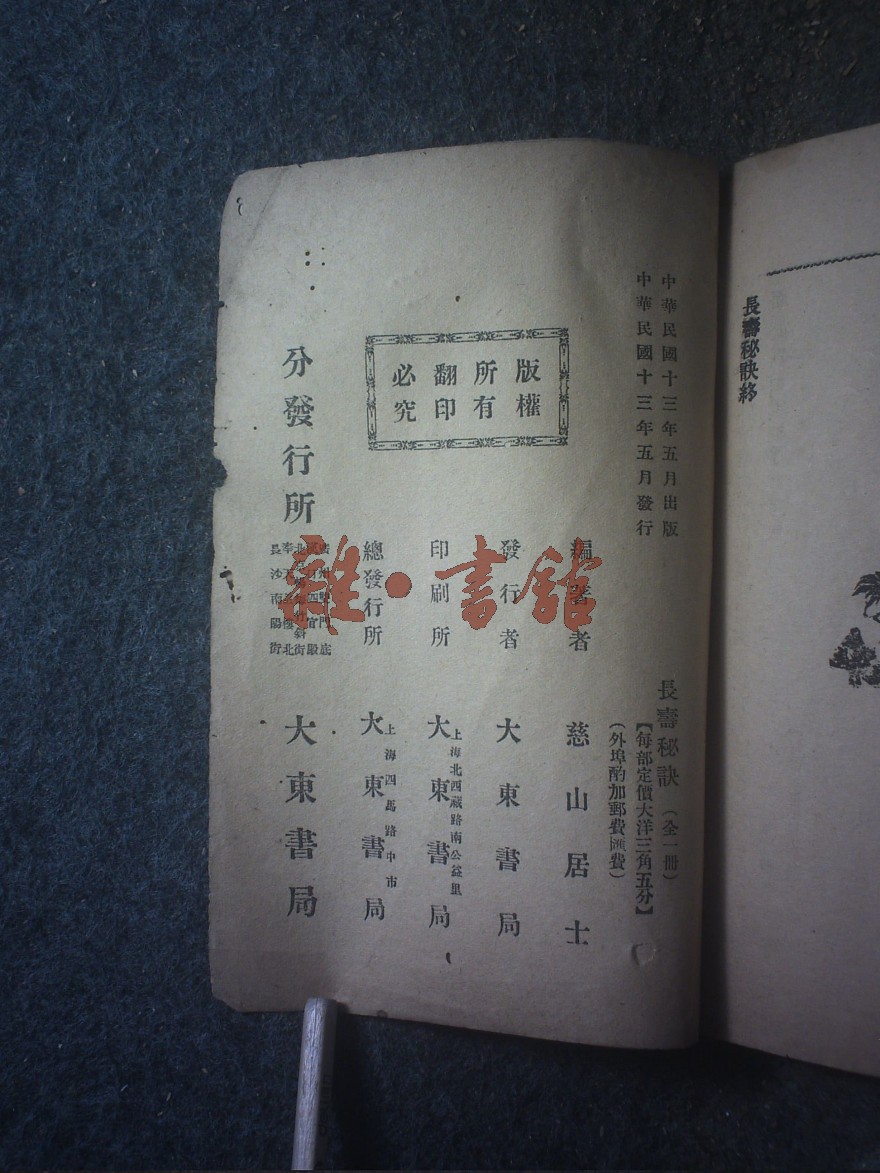 長壽秘訣終
中華民國十三年五月出版
中華民國十三年五月發行
長壽秘訣（全一冊）
【每部定價大洋三角五分】
（外埠酌加郵費匯費）
版權
所有
翻印
必究
編著者 慈山居士
發行者 大東書局
印刷所 上海北西藏路南公益里 大東書局
總發行所 上海四馬路中市 大東書局
分發行所
長沙南陽街
大東書局
雜·書館